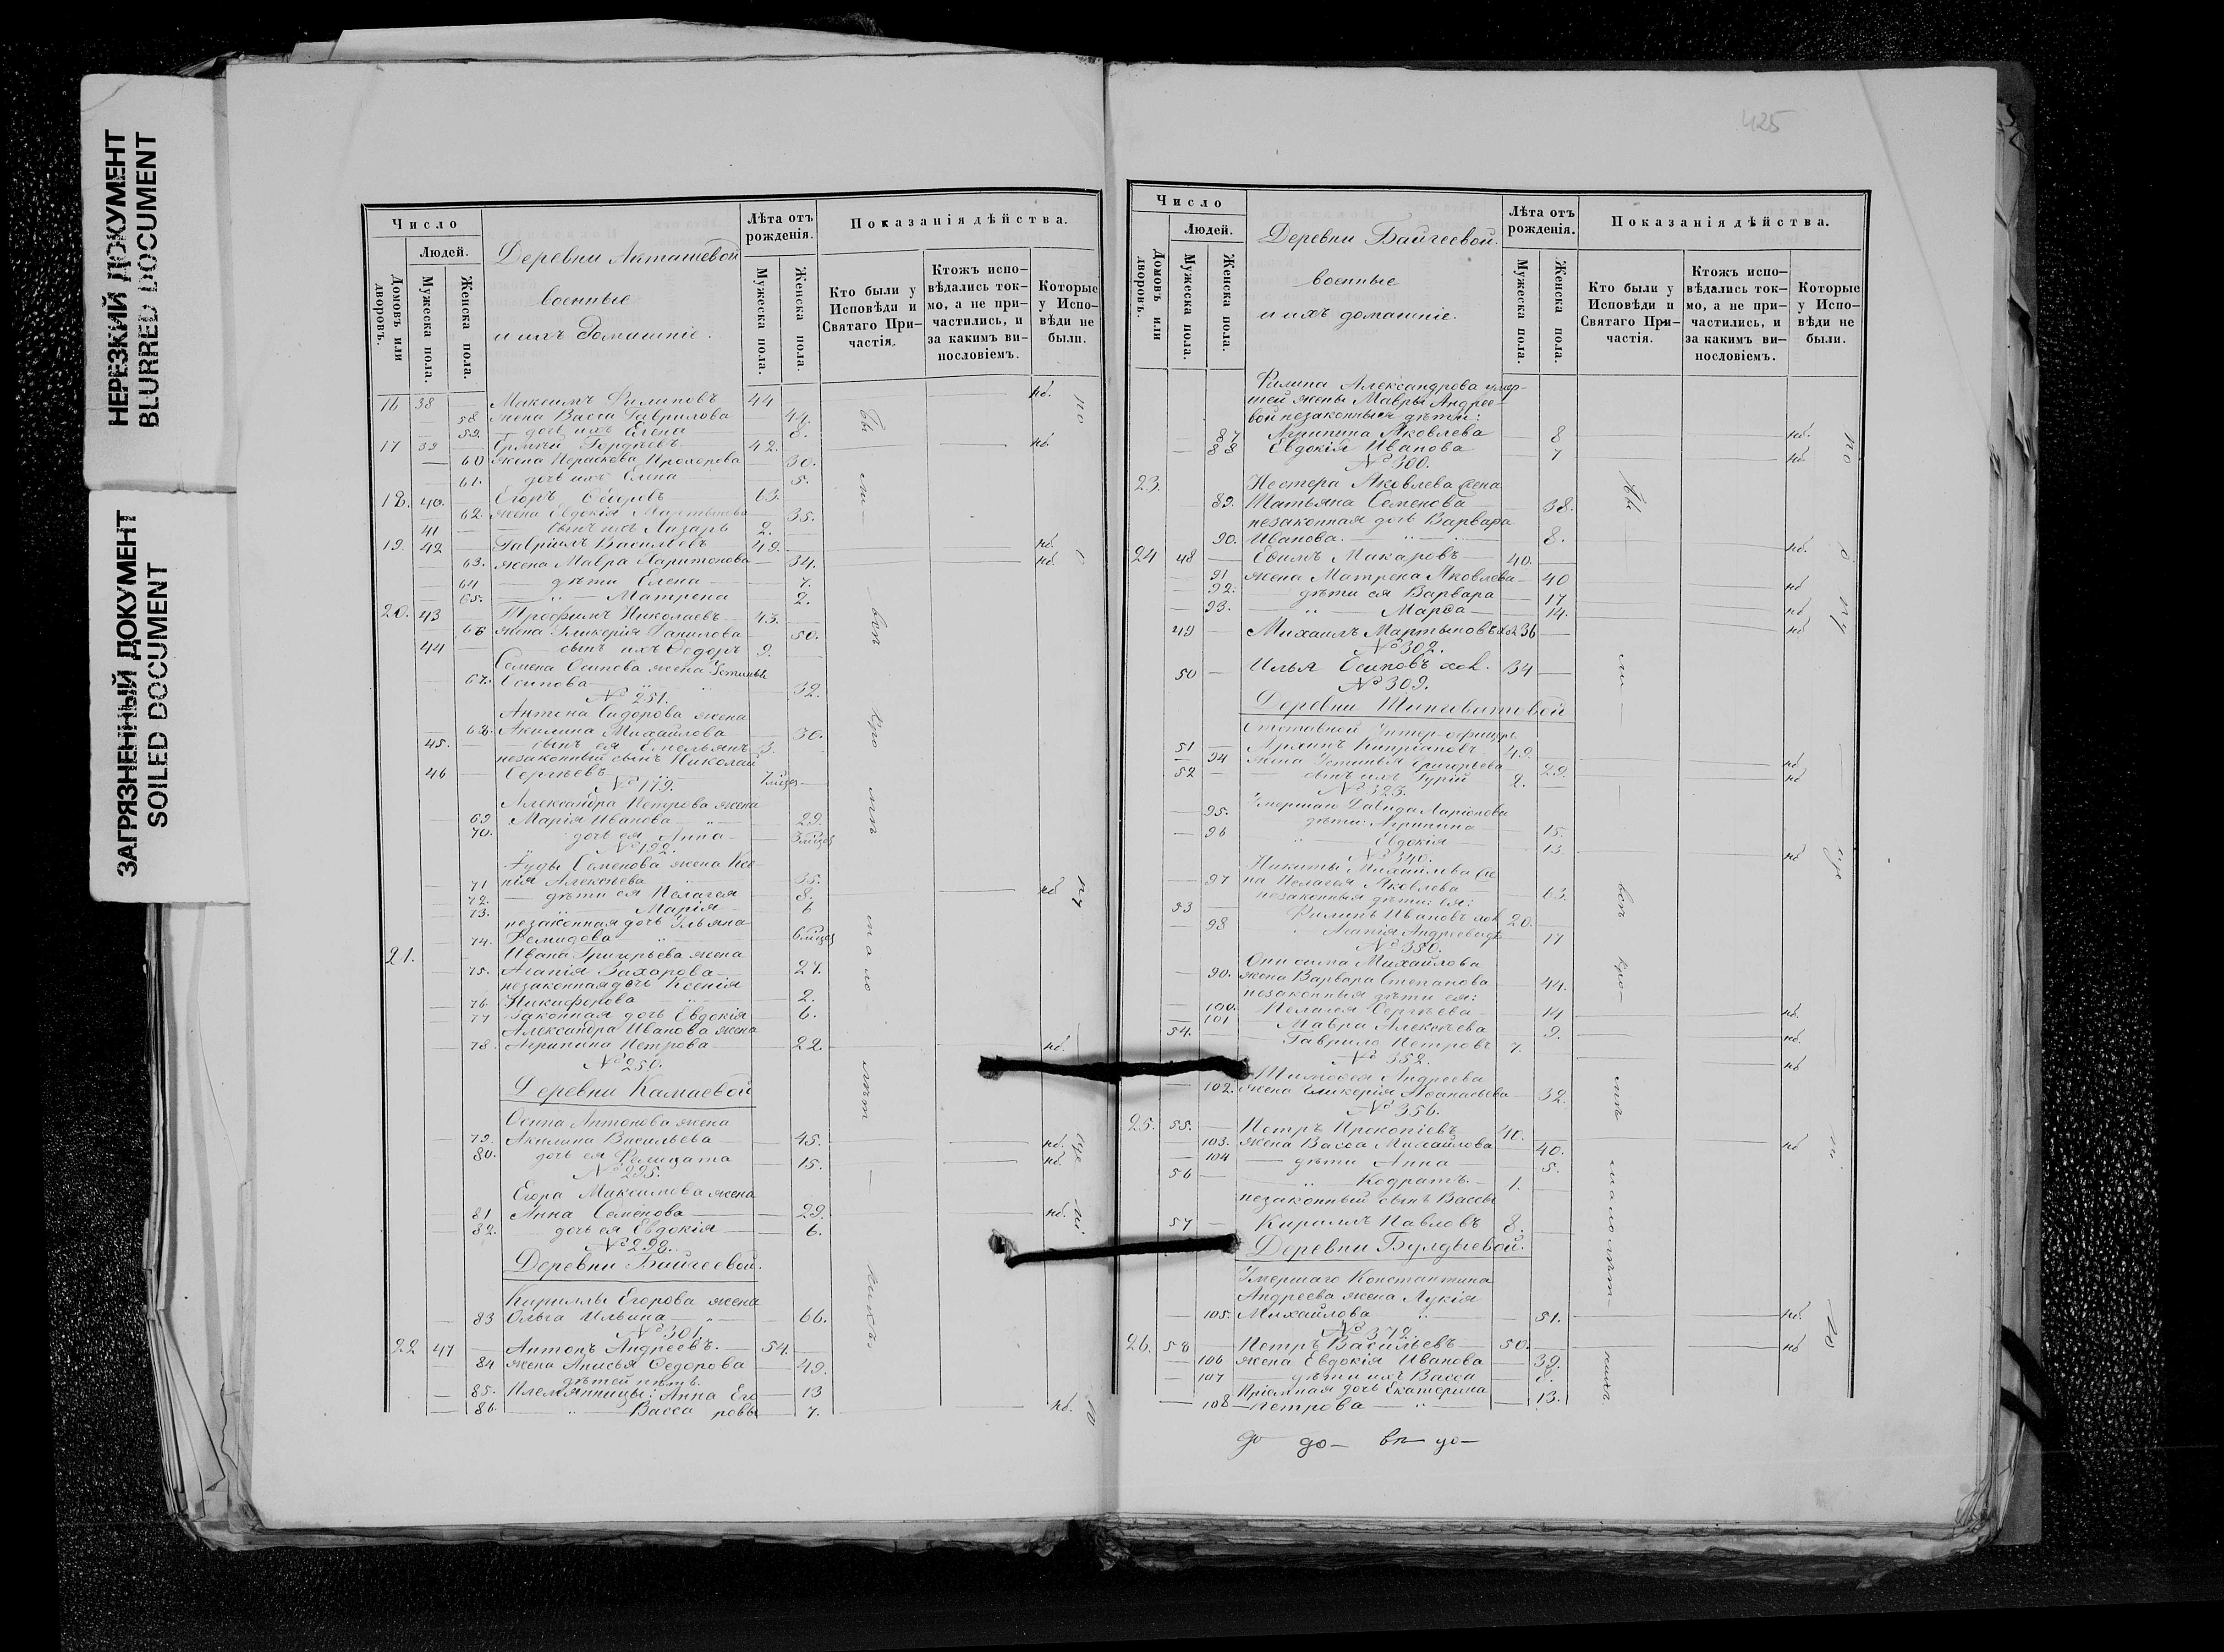 НЕРЕЗКИЙ ДОКУМЕНТ
BLURRED DOCUMENT
ЗАГРЯЗНЕННЫЙ ДОКУМЕНТ
SOILED DOCUMENT
Число
Людей.
Домовъ или дворовъ.
Мужеска пола.
Женска пола.
Деревни Акташевой
военные
и ихъ домашніе.
Лѣта отъ рожденія.
Мужеска пола.
Женска пола.
Показанія дѣйства.
Кто были у Исповѣди и Святаго Причастія.
Ктожъ исповѣдались токмо, а не причастились, и за какимъ винословіемъ.
Которые у Исповѣди не были.
16 38 — Максимъ Филиповъ 44 — нб.
58 жена Васса Гаврилова 44.
59. дочь ихъ Елена 8.
17 39 Гордѣевъ 42. нб.
60 жена Параскева Прохорова 30.
61. дочь ихъ Елена 5.
18. 40. Егоръ
62. жена Евдокія Мартынова 35.
41 сынъ ихъ Лазарь 2.
19. 42 Гавріилъ Васильевъ 49. нб.
63. жена Мавра Харитонова 34. нб
64 дѣти Елена 7.
65. Матрена 2.
20. 43 Трофимъ Николаевъ 43.
66 жена Гликерія Данилова 50.
44 сынъ ихъ Ѳедоръ 9.
Семена Осипова жена Устинья
67. Осипова 32.
№ 251.
Антона Сидорова жена
68. Акилина Михайлова 30.
45. сынъ ея Емельянъ 3.
незаконный сынъ Николай
46 Сергѣевъ
№ 179.
Александра Петрова жена
69 Марія Иванова 29.
70. дочь ея Анна
№ 192.
Іуды Семенова жена Ксе-
71 нія Алексѣева 35.
72. дѣти ея Пелагея 8. нб
73. Марія 6
незаконная дочь Ульяна
74. Демидова
21. Ивана Григорьева жена
75. Агапія Захарова 27.
незаконная дочь Ксенія
76. Никифорова 2.
77 Законная дочь Евдокія 6.
Александра Иванова жена
78. Агрипина Петрова 22. нб.
№ 256.
Деревни Камаевой
Осипа Антонова жена
79. Акилина Васильева 45. нб.
80. дочь ея Фелицата 15. нб.
№ 295.
Егора Максимова жена
81 Анна Семенова 29. нб.
82. дочь ея Евдокія 6.
№ 298.
Деревни Байгеевой.
Кириллы Егорова жена
83 Ольга Ильина 66.
№ 301.
22 47 Антонъ Андреевъ. 54.
84 жена Анисья Ѳедорова 49.
дѣтей нѣтъ.
85. Племянницы: Анна Его 13
86. Васса ровы 7. нб.
425
Число
Людей.
Домовъ или дворовъ.
Мужеска пола.
Женска пола.
Деревни Байгеевой.
военные
и ихъ домашніе.
Лѣта отъ рожденія.
Мужеска пола.
Женска пола.
Показанія дѣйства.
Кто были у Исповѣди и Святаго Причастія.
Ктожъ исповѣдались токмо, а не причастились, и за какимъ винословіемъ.
Которые у Исповѣди не были.
Филипа Александрова умер-
шей жены Мавры Андрее-
вой незаконныя дѣти:
87 Агрипина Яковлева 8 нб.
88 Евдокія Иванова 7 нб.
№ 300.
23. Нестера Яковлева жена
89. Татьяна Семенова 38.
незаконная дочь Варвара
90. Иванова. 8. нб.
24 48 Евѳимъ Макаровъ 40.
91 жена Матрена Яковлева 40 нб
92. дѣти ея Варвара 17 нб
93. Марѳа 14. нб
49 Михаилъ Мартыновъ 36
№ 302.
50 Илья Осиповъ хол. 34
№ 309.
Отставной Унтер-офицеръ
51 Кипріановъ 49.
94 жена Устинья Григорьева 29. нб
52 сынъ ихъ Гурій 2. нб
№ 323.
Умершаго Давида Ларіонова
95. дѣти: Агрипина 15.
96 Евдокія 13. нб
№ 340.
Никиты Михайлова же
97 на Пелагея Яковлева 63.
незаконныя дѣти ея:
53 Филипъ Ивановъ хол 20.
98 Агапія Андреева 17
№ 350.
Онисима Михайлова
99. жена Варвара Степанова 44.
незаконныя дѣти ея:
100. Пелагея Сергѣева 14 нб.
101 Мавра Алексѣева 9. нб.
54. Гаврило Петровъ 7. нб
№ 352.
Тимоѳея Андреева
102. жена Гликерія Аѳанасьева 32.
№ 356.
25. 55. Петръ Прокопіевъ 40.
103. жена Васса Михайлова 40. нб
104 дѣти Анна 5.
56 Кодратъ. 1.
незаконный сынъ Вассы
57 Кирилъ Павловъ 8.
Деревни Булдыевой.
Умершаго Константина
Андреева жена Лукія
105. Михайлова 51. нб.
№ 372.
26. 58 Петръ Васильевъ 50. нб
106 жена Евдокія Иванова 39.
107 дѣти ихъ Васса 8.
Пріемная дочь Екатерина
108 Петрова 13.